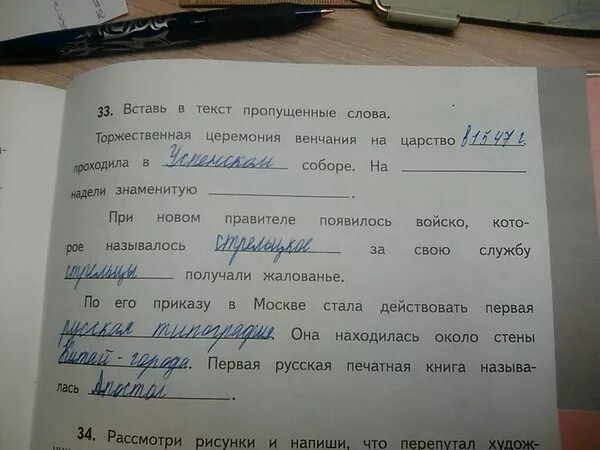 33. Вставь в текст пропущенные слова.
Торжественная церемония венчания на царство в 1547 г.
проходила в Успенском соборе. На
надели знаменитую .
При новом правителе появилось войско, кото-
рое называлось стрелецкое за свою службу
стрельцы получали жалованье.
По его приказу в Москве стала действовать первая
русская типография. Она находилась около стены
Китай-города. Первая русская печатная книга называ-
лась Апостол .
34. Рассмотри рисунки и напиши, что перепутал худож-